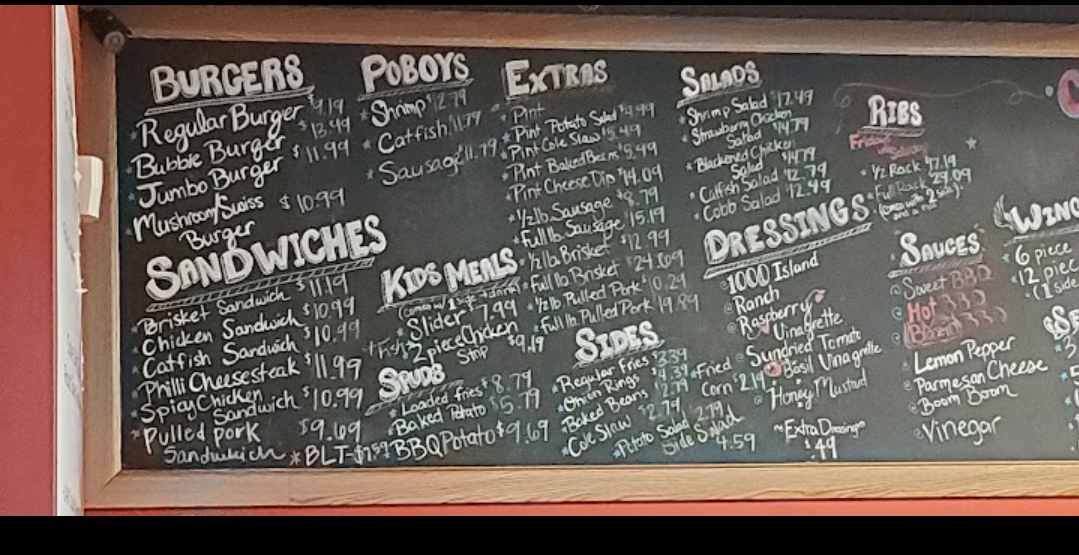 BURGERS
Regular Burger $9.19
Bubble Burger $13.49
Jumbo Burger $11.99
Mushroom/Swiss $10.99
Burger
SANDWICHES
Brisket Sandwich $11.19
Chicken Sandwich $10.99
Catfish Sandwich $10.49
Philli Cheesesteak $11.99
Spicy Chicken
Sandwich $10.99
Pulled pork $9.69
Sandwich
BLT-$7.59
POBOYS
Shrimp $12.79
Catfish $11.79
Sausage $11.79
KIDS MEALS
Slider $7.99
2 piece Chicken
Strip $9.19
SPUDS
Loaded fries $8.79
Baked Potato $5.79
BBQ Potato $9.69
EXTRAS
Pint
Pint Potato Salad $4.99
Pint Cole Slaw $5.49
Pint Baked Beans $5.49
Pint Cheese Dip $14.09
1/2 lb. Sausage $8.79
Full lb. Sausage $15.19
1/2 lb Brisket $12.99
Full lb. Brisket $24.69
1/2 lb Pulled Pork 10.29
Full lb. Pulled Pork 19.89
SIDES
Regular Fries $3.39
Onion Rings $4.39
Baked Beans $2.79
Cole Slaw $2.79
Potato Salad 2.79
Side Salad
4.59
Fried
Corn $2.19
SALADS
Shrimp Salad $12.49
Strawberry Chicken
Salad $14.79
Blackened Chicken
Salad $14.79
Catfish Salad $12.79
Cobb Salad $12.49
DRESSINGS
1000 Island
Ranch
Raspberry
Vinagrette
Sundried Tomato
Basil Vinagrette
Honey Mustard
Extra Dressing
$.49
RIBS
1/2 Rack $17.19
Full Rack 29.09
SAUCES
Sweet BBQ
Hot BBQ
Lemon Pepper
Parmesan Cheese
Boom Boom
Vinegar
WING
6 piece
12 piec
(1 side